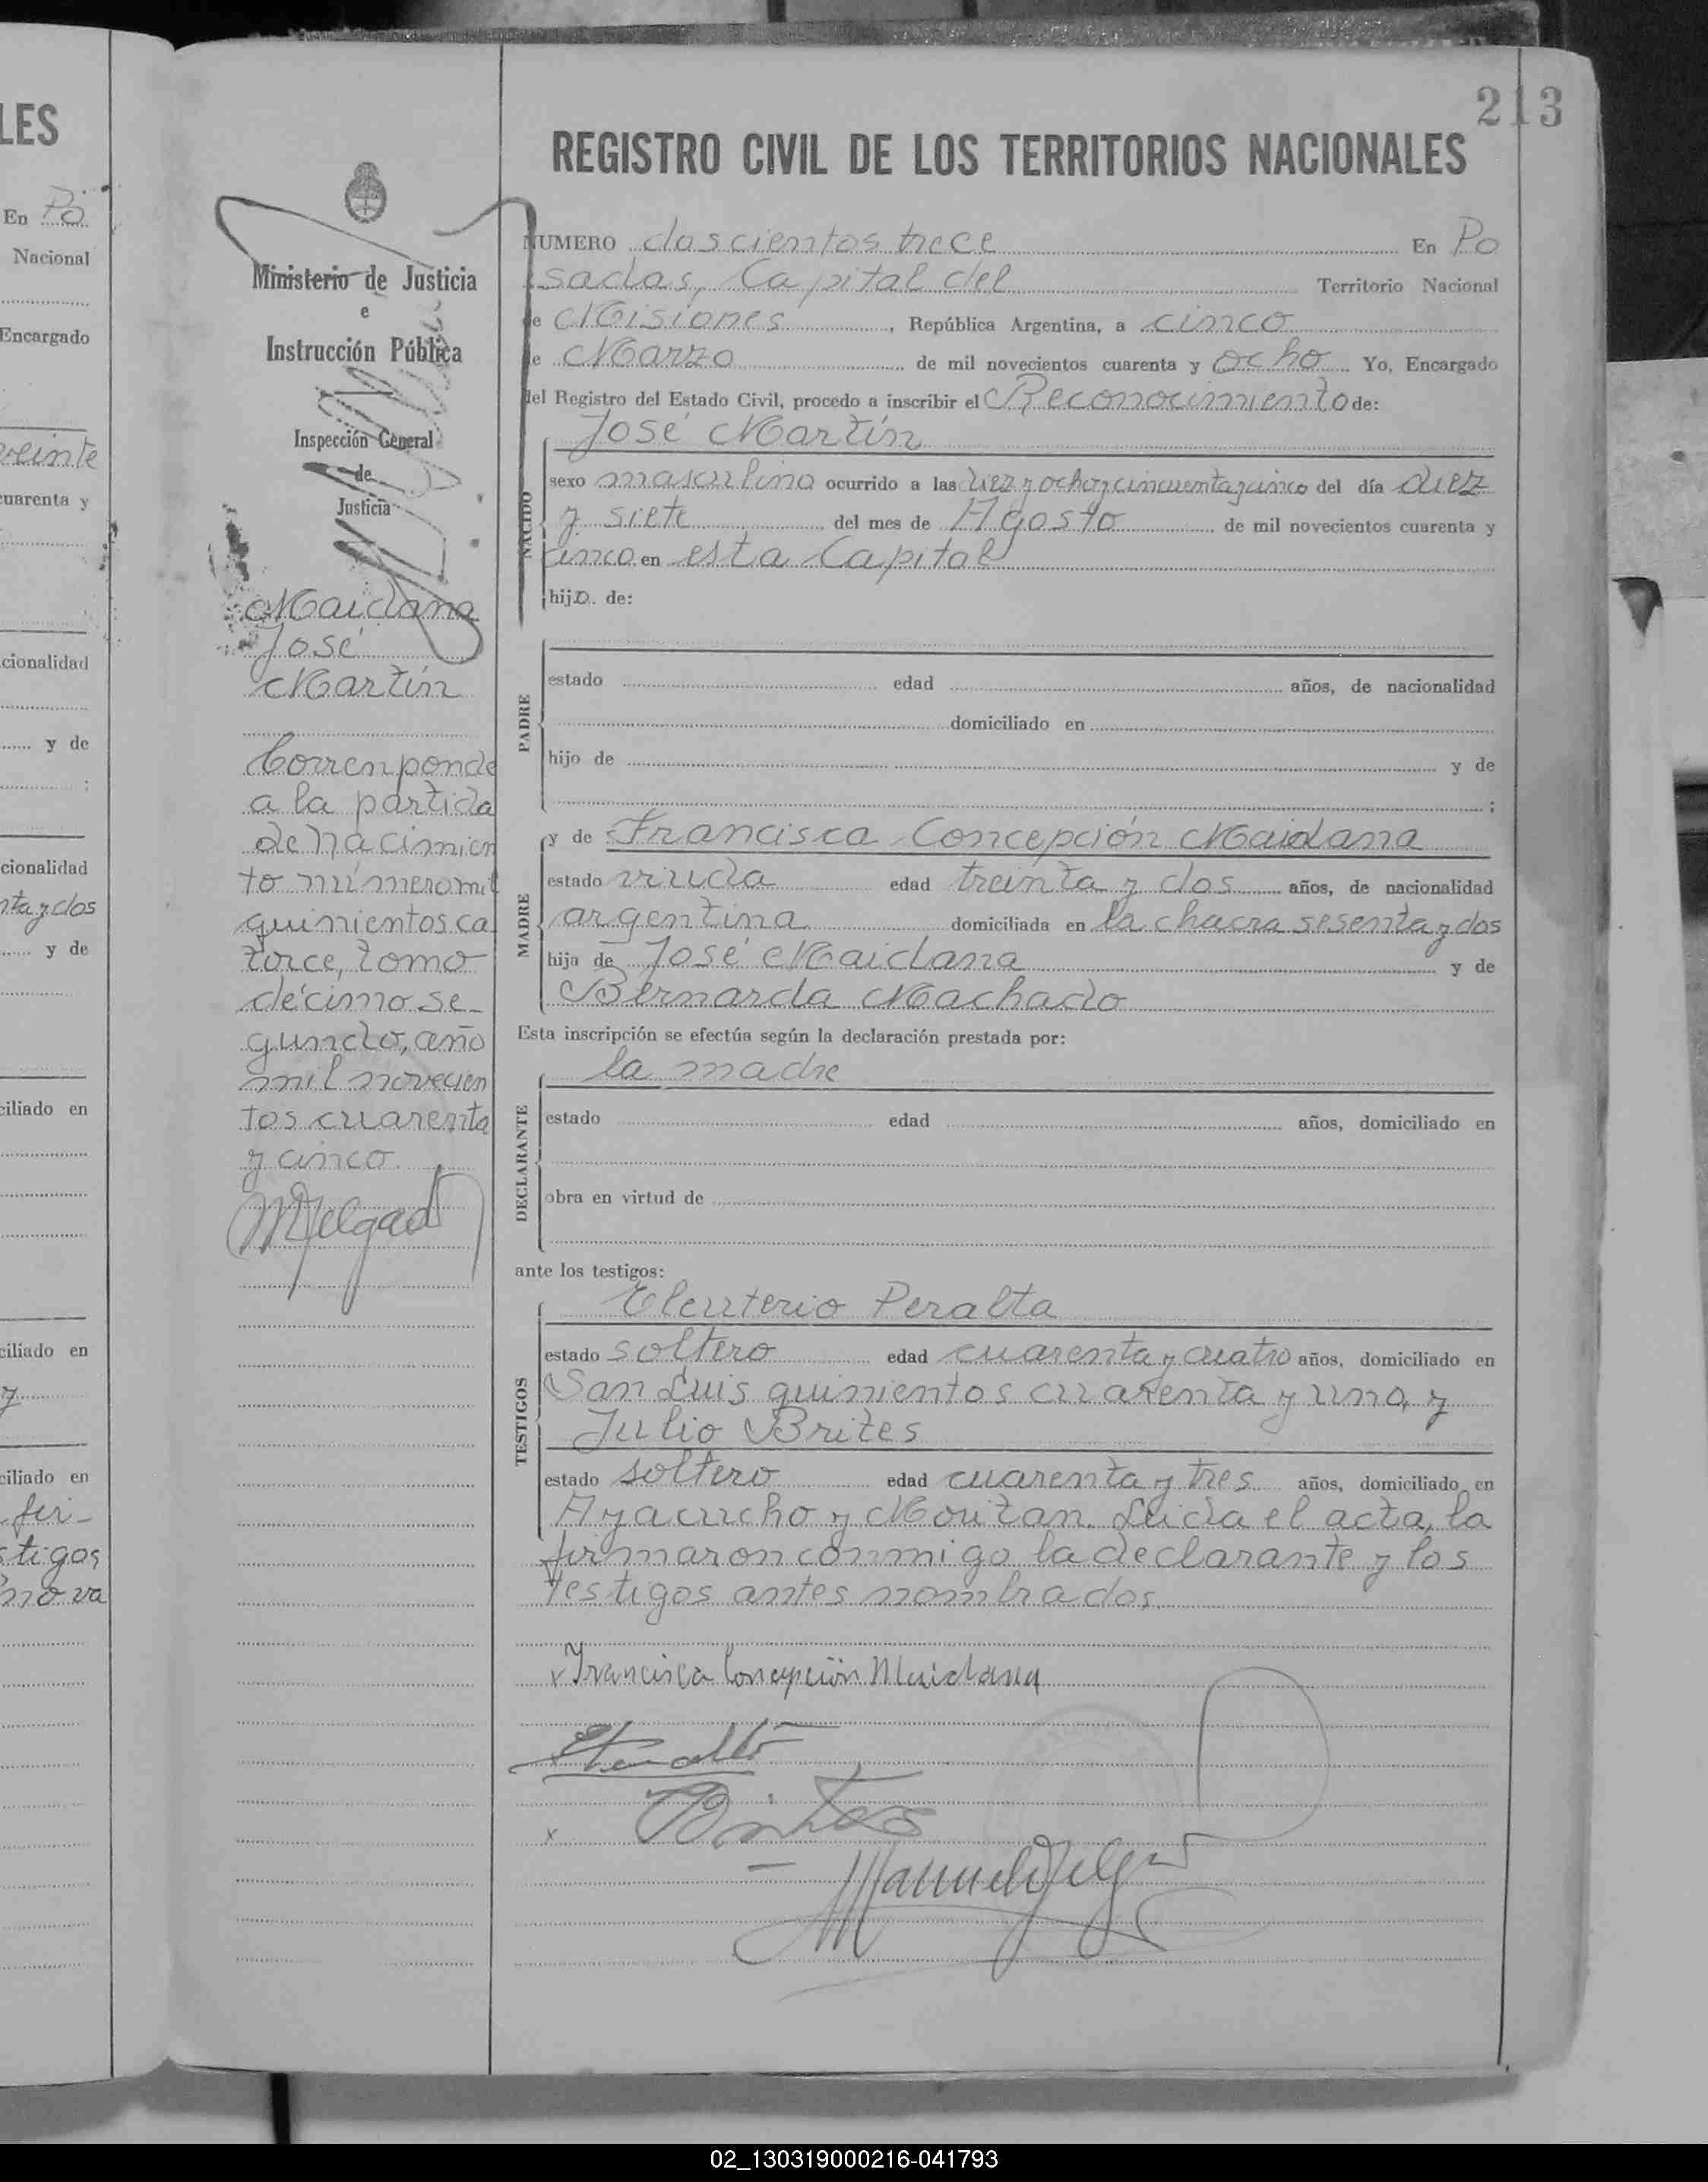 LES
En Po
Nacional
Encargado
veinte
cuarenta y
cionalidad
y de
;
cionalidad
nta y dos
y de
ciliado en
ciliado en
y
ciliado en
fir-
tigos
no va
213
Ministerio de Justicia
e
Instrucción Pública
Inspección General
de
Justicia
Maidana
José
Martín
Corresponde
a la partida
de nacimien
to número mil
quinientos ca
torce, tomo
décimo se-
gundo, año
mil novecien
tos cuarenta
y cinco.
REGISTRO CIVIL DE LOS TERRITORIOS NACIONALES
NUMERO doscientos trece En Po
sadas, Capital del Territorio Nacional
de Misiones, República Argentina, a cinco
de Marzo de mil novecientos cuarenta y ocho. Yo, Encargado
del Registro del Estado Civil, procedo a inscribir el Reconocimiento de:
NACIDO
José Martín
sexo masculino ocurrido a las diez y ocho y cincuenta y cinco del día diez
y siete del mes de Agosto de mil novecientos cuarenta y
cinco en esta Capital
hijo de:
PADRE
estado edad años, de nacionalidad
domiciliado en
hijo de y de
;
MADRE
y de Francisca Concepción Maidana
estado viuda edad treinta y dos años, de nacionalidad
argentina domiciliada en la chacra sesenta y dos
hija de José Maidana y de
Bernarda Machado
Esta inscripción se efectúa según la declaración prestada por:
DECLARANTE
la madre
estado edad años, domiciliado en
obra en virtud de
ante los testigos:
TESTIGOS
Eleuterio Peralta
estado soltero edad cuarenta y cuatro años, domiciliado en
San Luis quinientos cuarenta y uno, y
Julio Brites
estado soltero edad cuarenta y tres años, domiciliado en
Ayacucho y Moritan. Leida el acta, la
firmaron conmigo la declarante y los
testigos antes nombrados.
x Francisca Concepción Maidana
x Brites
02_130319000216-041793